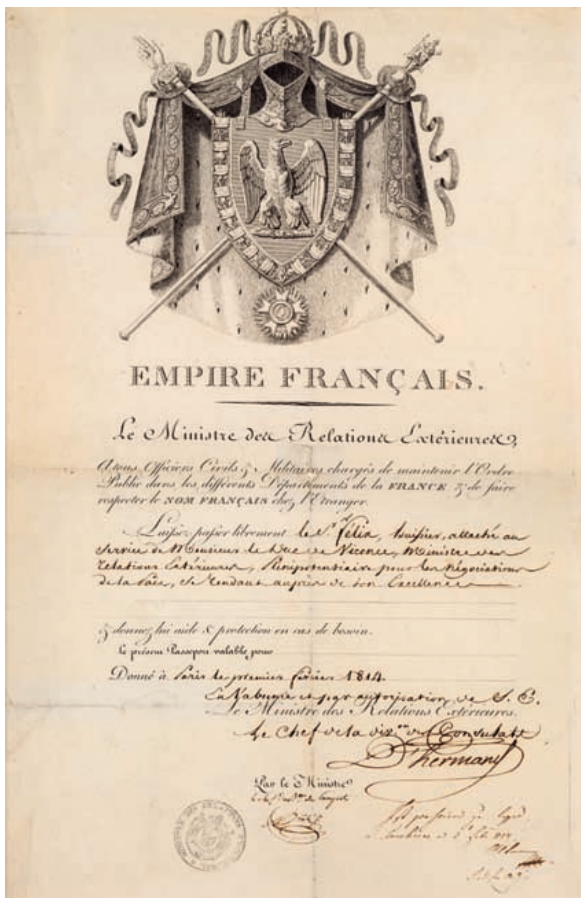 EMPIRE FRANÇAIS.
Le Ministre des Relations Extérieures,
A tous Officiers Civils & Militaires chargés de maintenir l'Ordre
Public dans les différents Départements de la FRANCE & de faire
respecter le NOM FRANÇAIS chez l'Etranger.
Laissez passer librement le Sr Félix, huissier, attaché au
Service de Monsieur le Duc de Vicence, Ministre des
relations Extérieures, Plénipotentiaire pour les Négociations
de la Paix, se rendant auprès de Son Excellence
& donnez lui aide & protection en cas de besoin.
Le présent Passeport valable pour
Donné à Paris le premier février 1814.
En l'absence et par autorisation de S. E.
Le Ministre des Relations Extérieures.
Le Chef de la divon des Consulats
D'hermand
Par le Ministre